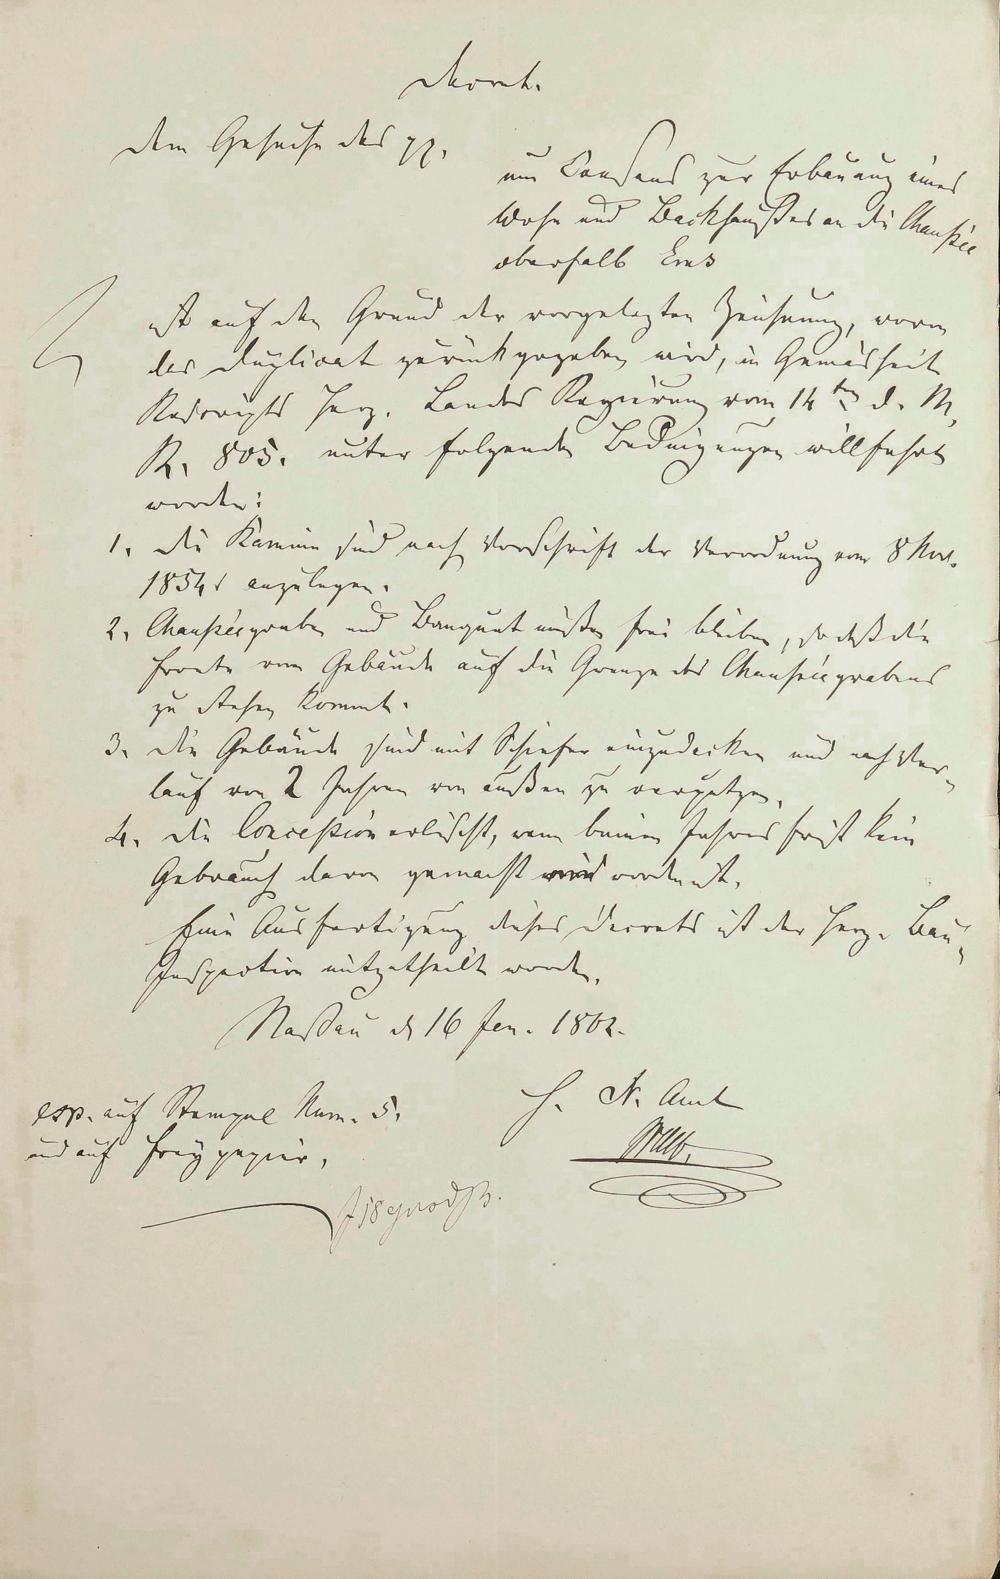 Decret.
Dem Gesuche des pp.
um Consens zur Erbauung eines
Wohn und Backhaußes an die Chaußee
oberhalb Ems
ist auf den Grund der vorgelegten Zeichnung, wovon
das Duplicat zurückgegeben wird, in Gemäsheit
Rescripts Herz. Landes Regierung vom 14ten d. M.
R. 805. unter folgenden Bedingungen willfahrt
worden:
1. Die Kamine sind nach Vorschrift der Verordnung vom 8 Nov.
1854 anzulegen.
2. Chausséegraben und Banquet müßen frei bleiben, so daß die
Fronte vom Gebäude auf die Grenze des Chausséegrabens
zu stehen kommt.
3. Die Gebäude sind mit Schiefer einzudecken und nach Ver-
lauf von 2 Jahren von außen zu verputzen.
4. Die Concession erlischt, wenn binnen Jahresfrist kein
Gebrauch davon gemacht worden ist.
Eine Ausfertigung dieses Decrets ist der Herz. Bau-
Inspection mitgetheilt worden.
Naßau d 16 Jan. 1862.
H. N. Amt
exp. auf Stempel Num. 5.
und auf Freypapier.